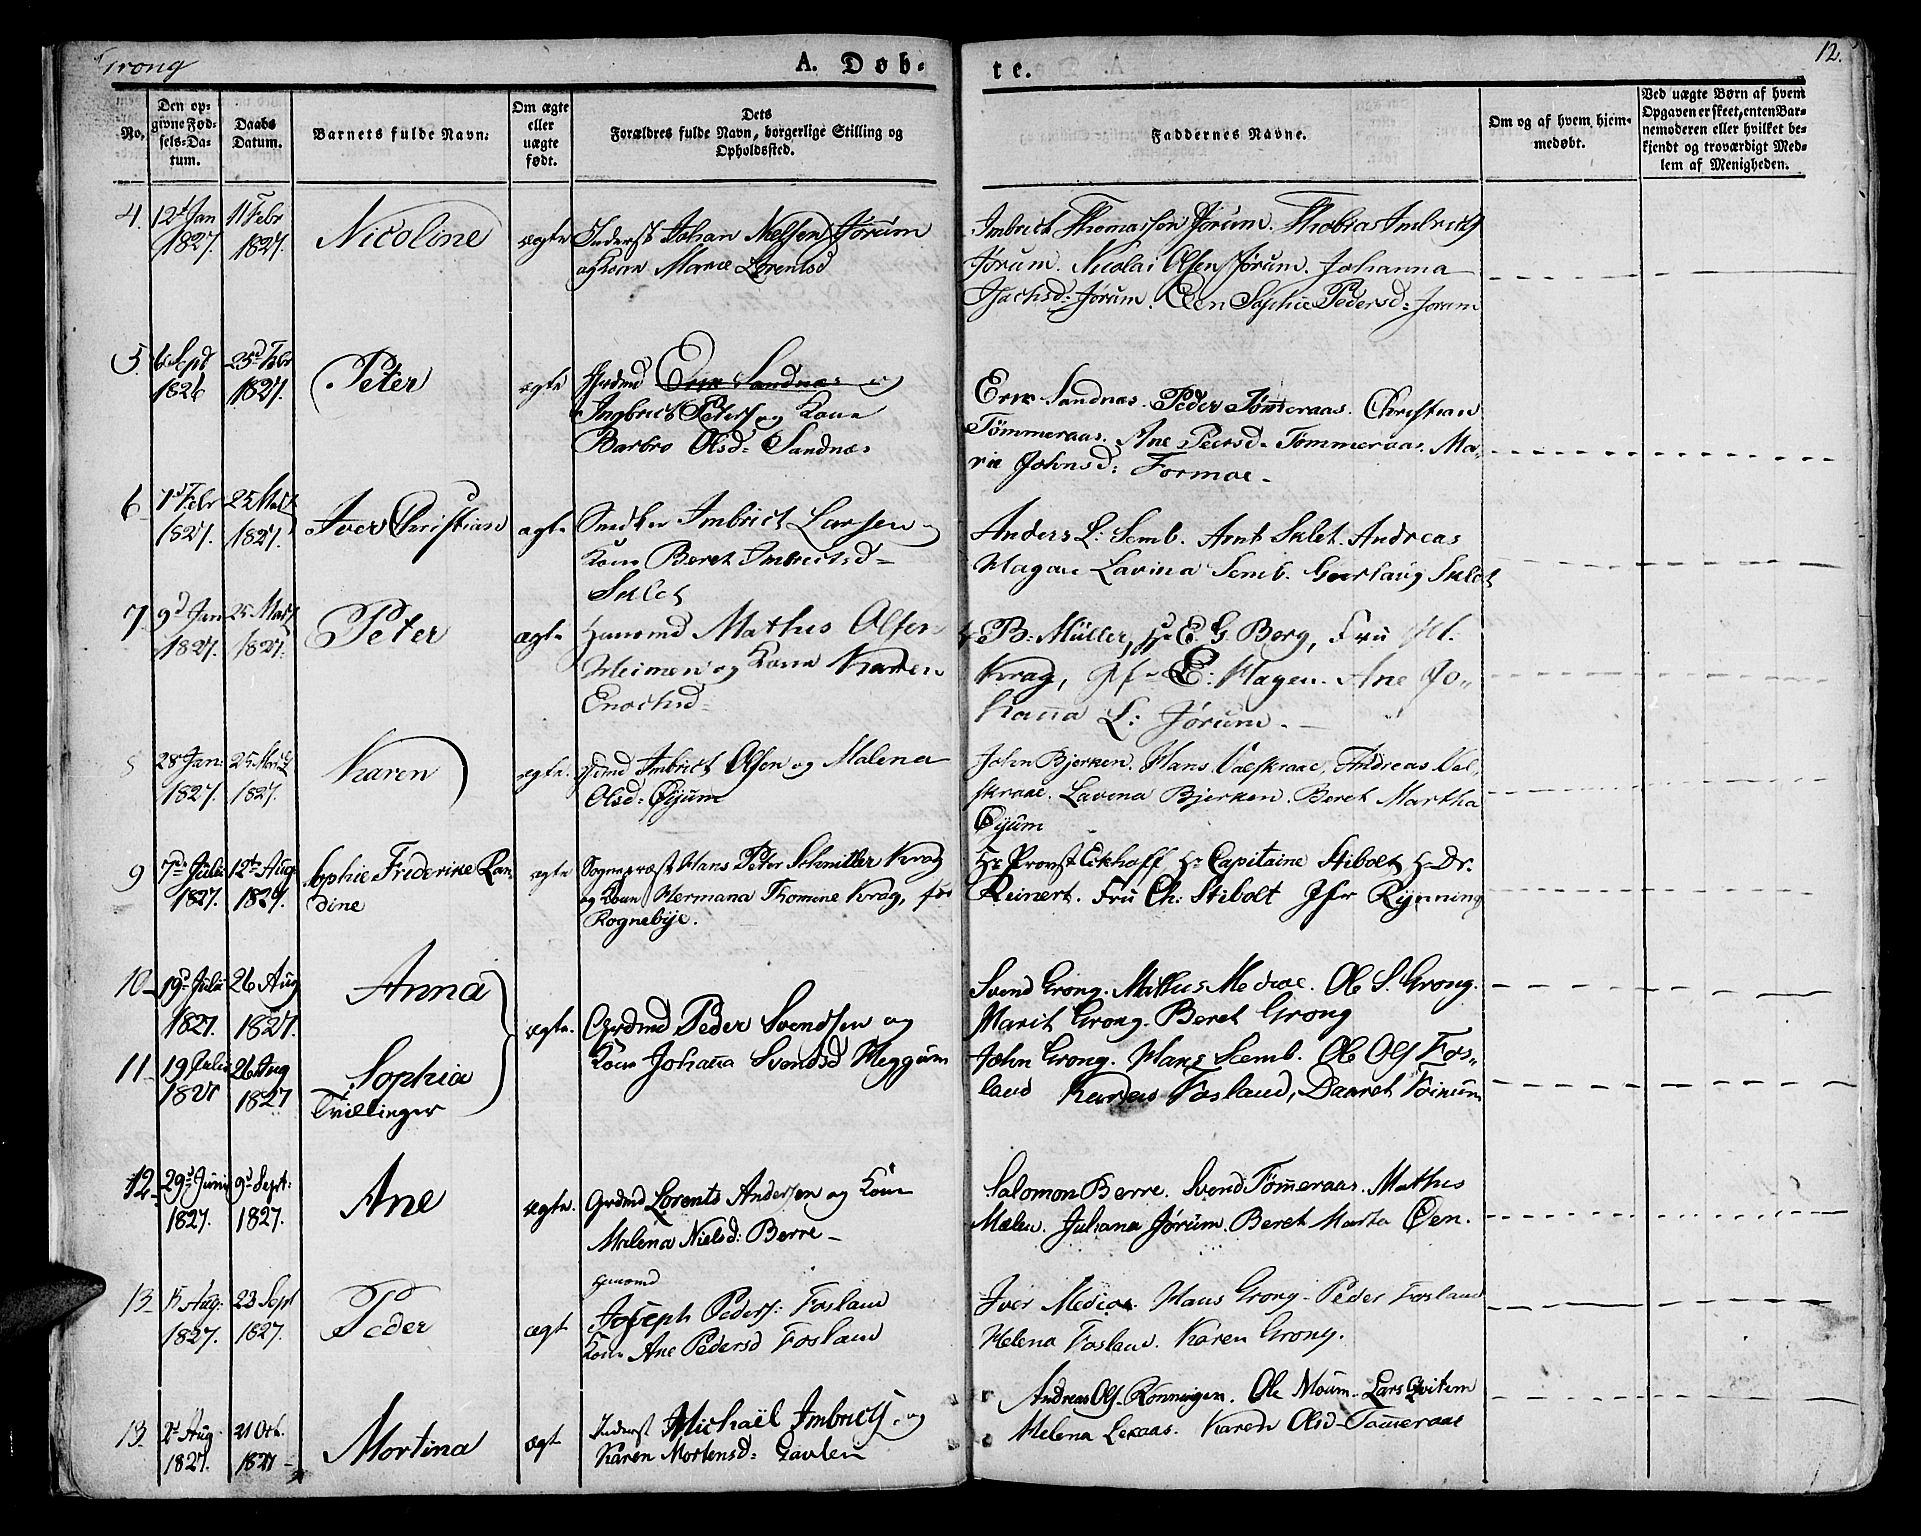 Grong
A. Døb-
te.
12.
No.
Den op-
givne Fød-
sels-Da-
tum.
Daabs
Datum.
Barnets fulde Navn.
Om ægte
eller
uægte
født.
Dets
Forældres fulde Navn, borgerlige Stilling og
Opholdssted.
Faddernes Navne.
Om og af hvem hjem-
medøbt.
Ved uægte Børn af hvem
Opgaven er skeet, enten Bar-
nemoderen eller hvilket be-
kjendt og troværdigt Med-
lem af Menigheden.
4. 12t Jan 11 Febr
1827. 1827.
Nicoline
ægte
Inderst Johan Nielsen Jørum
og Kone Marie Lorentsd
Imbrict Thomassen Jørum. Thobias Imbrictz
Jørum. Nicolai Olsen Jørum. Johanna
Jørum. Elen Sophie Pedersd: Jørum
5. 6 Sept 25d Febr
1826 1827.
Peter
ægte
Grdmd Erik Sandnæs og
Ingbrict Peters og Kone
Barbro Olsd: Sandnæs
Erik Sandnæs. Peder Tømmeraas. Christian
Tömmeraas. Ane Peersd. Tömmeraas. Ma-
rie Johnsd: Formoe.
6 1d Febr 25 Martz
1827. 1827.
Iver Christian
ægte
Smeker Imbrict Larsen
Kone Beret Imbrictsd
Sklet
Anders L: Semb. Arnt Sklet. Andreas
Hagan Lavina Semb. Gurlaug Sklet
7. 9d Jan 25 Martz
1827. 1827.
Peter
ægte
Huusmd Mathis Olsen
Heimen og Kone Karen
Enochsd
B: Müller, Hr E. G. Berg, Fru M.
Krag, Jfr E: Hagen. Ane Jo-
hanna L: Jørum.
8 28 Jan: 25 Martz
1827. 1827.
Karen
ægte.
Imbrict Olsen og Malena
Olsd: Øijum
John Bjerken. Hans Valskraae, Andreas Val-
skraae. Lavina Bjerken. Beret Martha
Øijum
9 7de Julii 12te Aug
1827. 1827.
Sophie Friderike Lan-
dine
ægte
Sognepræst Hans Peter Schnitler Krag
og Kone Hermana Thomine Krag, fød
Rognebye.
Hr Provst Eckhoff Hr Capitaine Stibolt Hr Dr.
Reinert. Fru Ch: Stibolt Jfr Rynning
10 19d Julii 26 Aug
1827. 1827.
Anna
ægte.
Grdmd Peder Svendsen og
Kone Johana Svendsd Heggum
Svend Grong. Mathis Mediae. Ole S. Grong.
Marit Grong. Beret Grong
11 19 Julii 26 Aug
1827 1827
Sophia
Tvillinger
John Grong. Hans Semb. Ole Ols Fos-
land Fosland, Daaret
12 29d Junii 9d Sept:
1827. 1827.
Ane
ægte.
Grdmd Lorents Andersen og Kone
Malena Nielsd: Berre
Salomon Berre. Svend Tømeraas. Mathis
Mælen. Juhana Jørum. Beret Marta Øen.
13 15 Aug: 23 Sept
1827. 1827.
Peder
ægt
Huusmd
Joseph Peders: Fosland
Kone Ane Pedersd Fosland
Iver Mediae. Hans Grong. Peder Fosland
Helena Fosland. Karen Grong.
13 2d Aug 21 Oct.
1827. 1827
Mortina
ægt
Inderst Michaël Imbrictz og
Karen Mortensd: Gavlen
Andreas Ols. Rönningen. Ole Moum. Lars Qvitem
Helena Lexaas. Karen Olsd Tømeraas